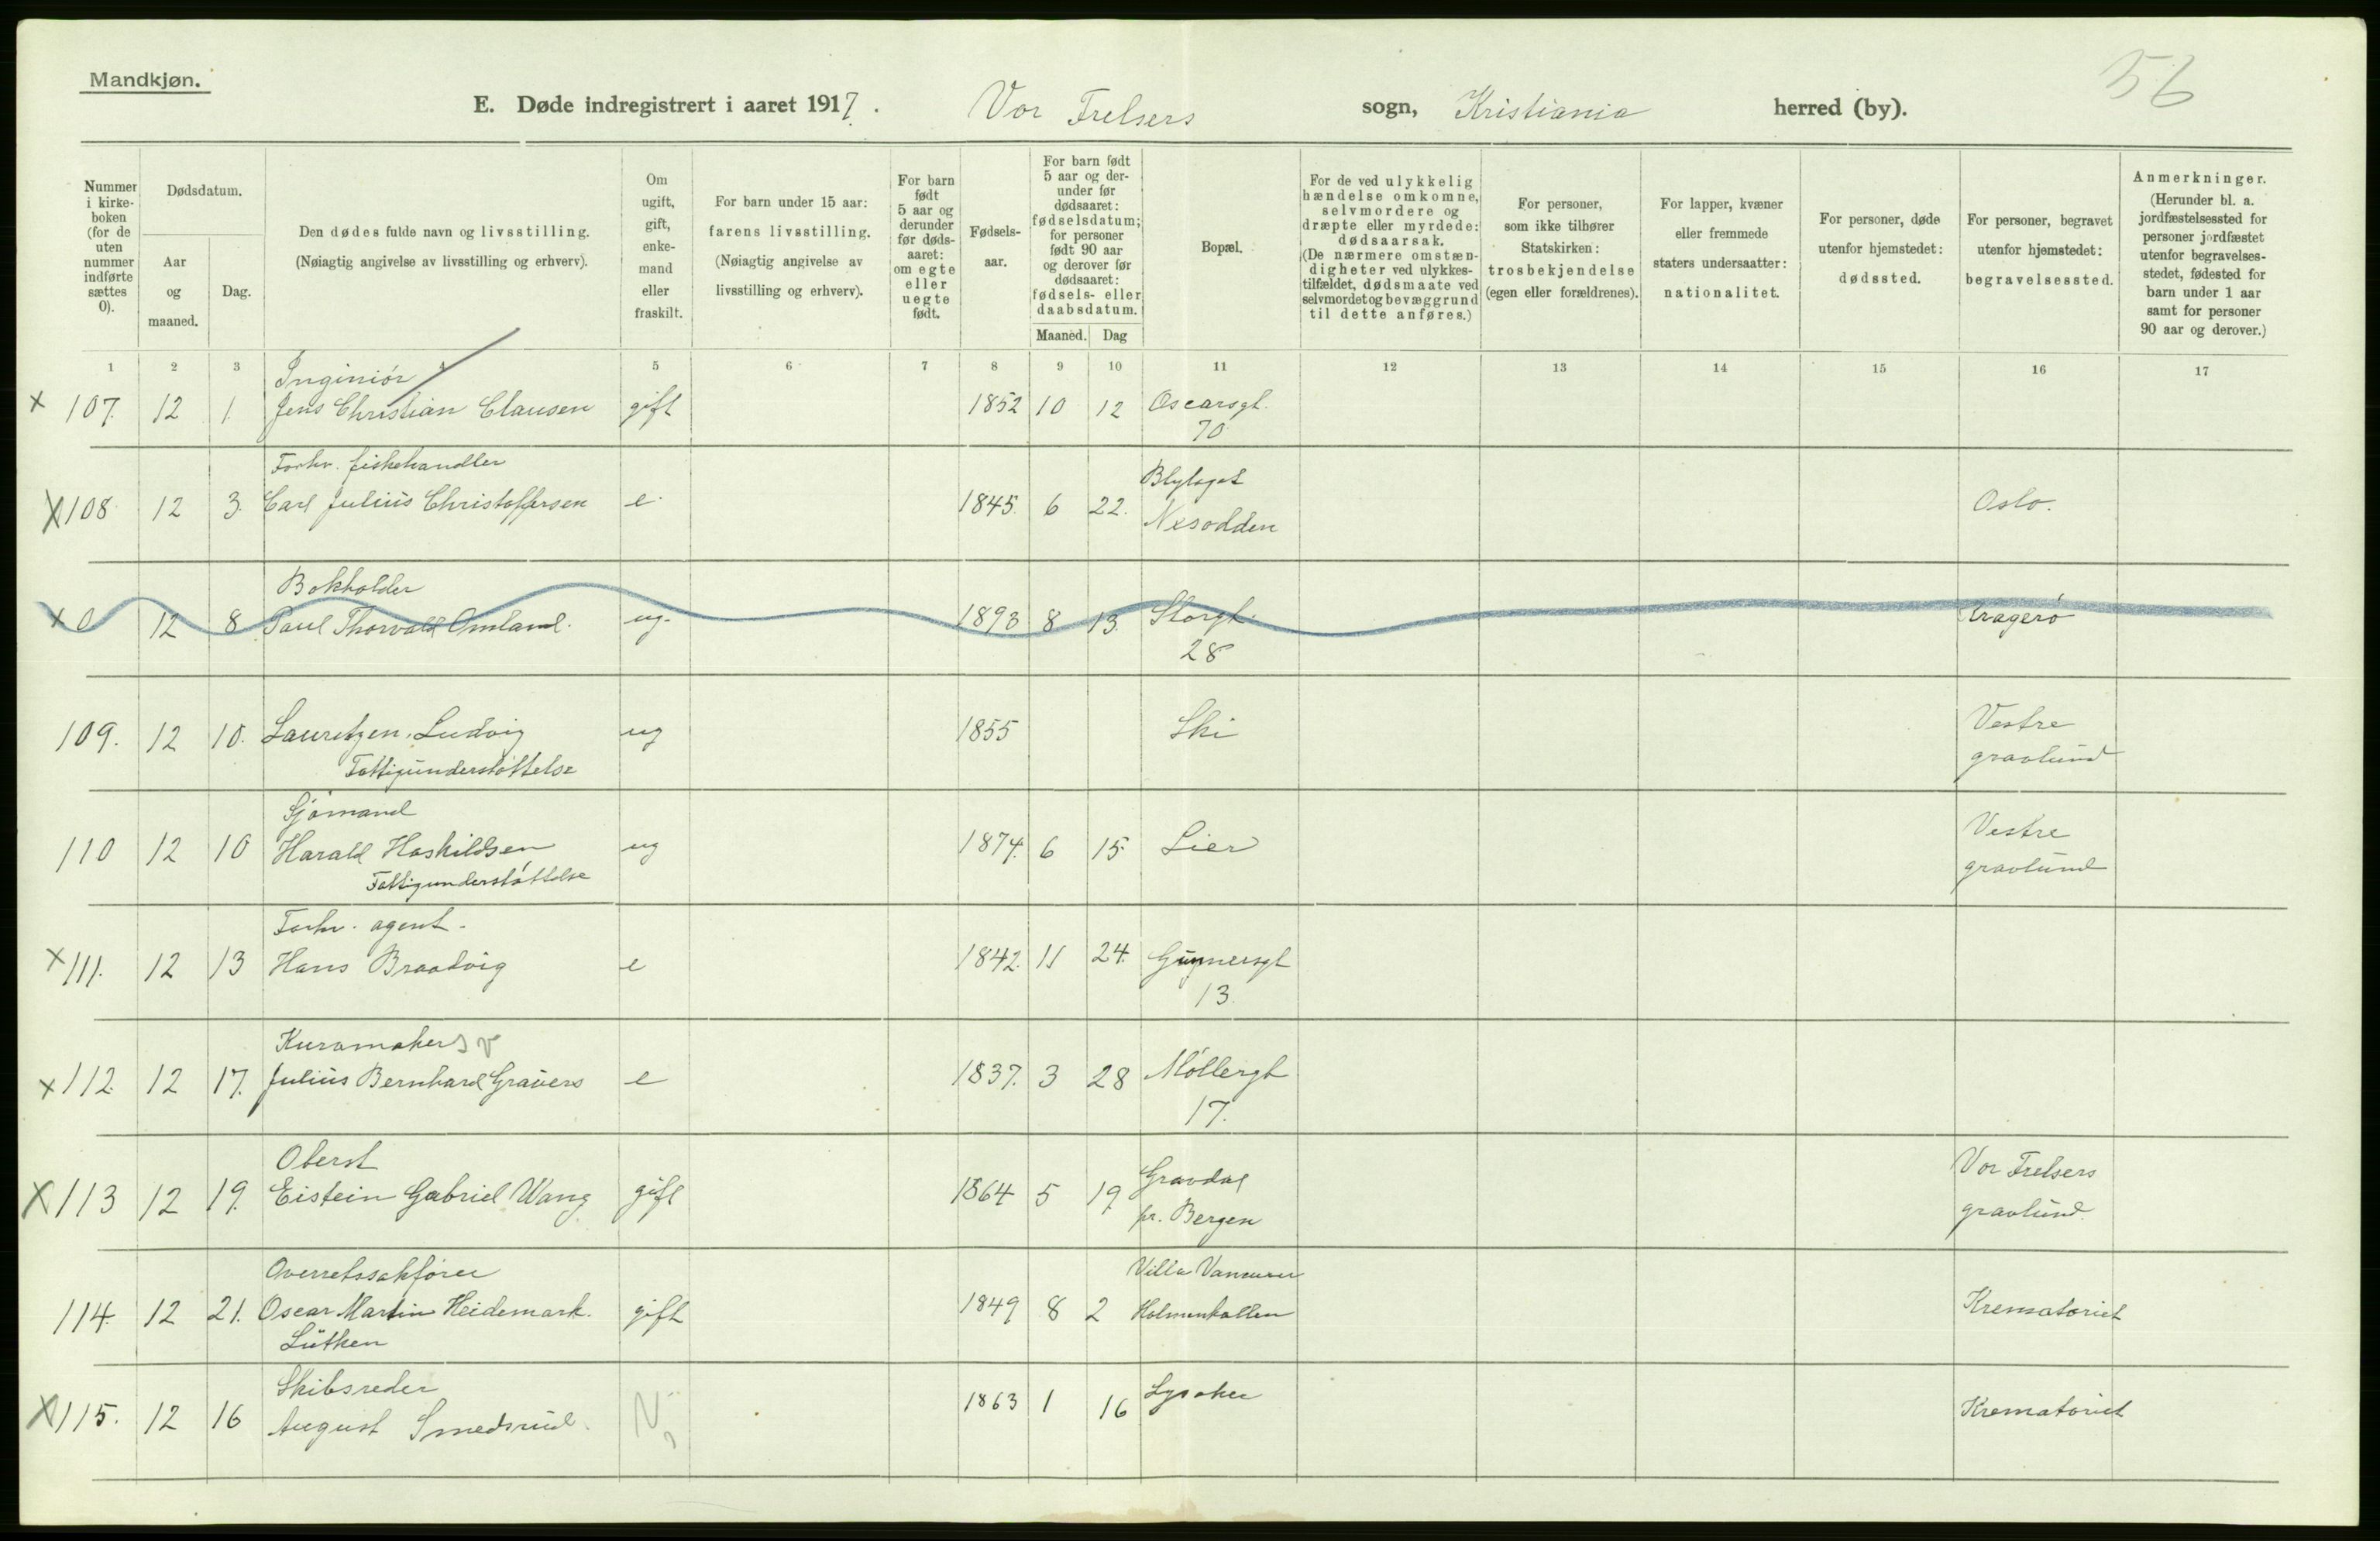 Mandkjøn.
56
E. Døde indregistrert i aaret 1917. Vor Frelsers sogn, Kristiania herred (by).
Nummer i kirke-boken (for de uten nummer indførte sættes 0).
Dødsdatum.
Aar og maaned.
Dag.
Den dødes fulde navn og livsstilling. (Nøiagtig angivelse av livsstilling og erhverv).
Om ugift, gift, enke-mand eller fraskilt.
For barn under 15 aar: farens livsstilling. (Nøiagtig angivelse av livsstilling og erhverv).
For barn født 5 aar og derunder før døds-aaret: om egte eller uegte født.
Fødsels-aar.
For barn født 5 aar og der-under før dødsaaret: fødselsdatum; for personer født 90 aar og derover før dødsaaret: fødsels- eller daabsdatum.
Maaned. Dag
Bopæl.
For de ved ulykkelig hændelse omkomne, selvmordere og dræpte eller myrdede: dødsaarsak. (De nærmere omstæn-digheter ved ulykkes-tilfældet, dødsmaate ved selvmordet og bevæggrund til dette anføres.)
For personer, som ikke tilhører Statskirken: trosbekjendelse (egen eller forældrenes).
For lapper, kvæner eller fremmede staters undersaatter: nationalitet.
For personer, døde utenfor hjemstedet: dødssted.
For personer, begravet utenfor hjemstedet: begravelsessted.
Anmerkninger. (Herunder bl. a. jordfæstelsessted for personer jordfæstet utenfor begravelses-stedet, fødested for barn under 1 aar samt for personer 90 aar og derover.)
1 2 3 4 5 6 7 8 9 10 11 12 13 14 15 16 17
Inginiór
x 107. 12 1. Jens Christian Clausen gift 1852 10 12 Oscarsgt.
70
Forhv. fiskehandler
x 108 12 3. Carl Julius Christoffersen e. 1845. 6 22. Blylaget
Nesodden Oslo.
Bokholder
x 0 12 8 Paul Thorvald Omland. ug. 1893 8 13. Storgt.
28 Kragerø
109. 12 10. Lauretzen, Ludvig ug 1855 Ski Vestre
Fattigunderstøttelse gravlund
Sjømand
110 12 10 Harald Haskildsen ug 1874. 6 15. Lier Vestre
Fattigunderstøttelse gravlund
Forhv. agent.
x 111. 12 13 Hans Braadvig e 1842. 11 24. Gunnersgt
13.
Kuramaker
x 112 12 17. Julius Bernhard Grauers e 1837. 3 28 Møllergt
17.
Oberst
x 113 12 19. Eistein Gabriel Wang gift 1864 5 19. Gravdal
pr. Bergen Vor Frelsers
gravlund.
Overretssakfører Villa
114. 12 21. Oscar Martin Heidemark. gift 1849 8 2 Holmenkollen Krematoriet
Lütken
Skibsreder
x 115. 12 16 August Smedsrud. 1863 1 16 Lysaker Krematoriet